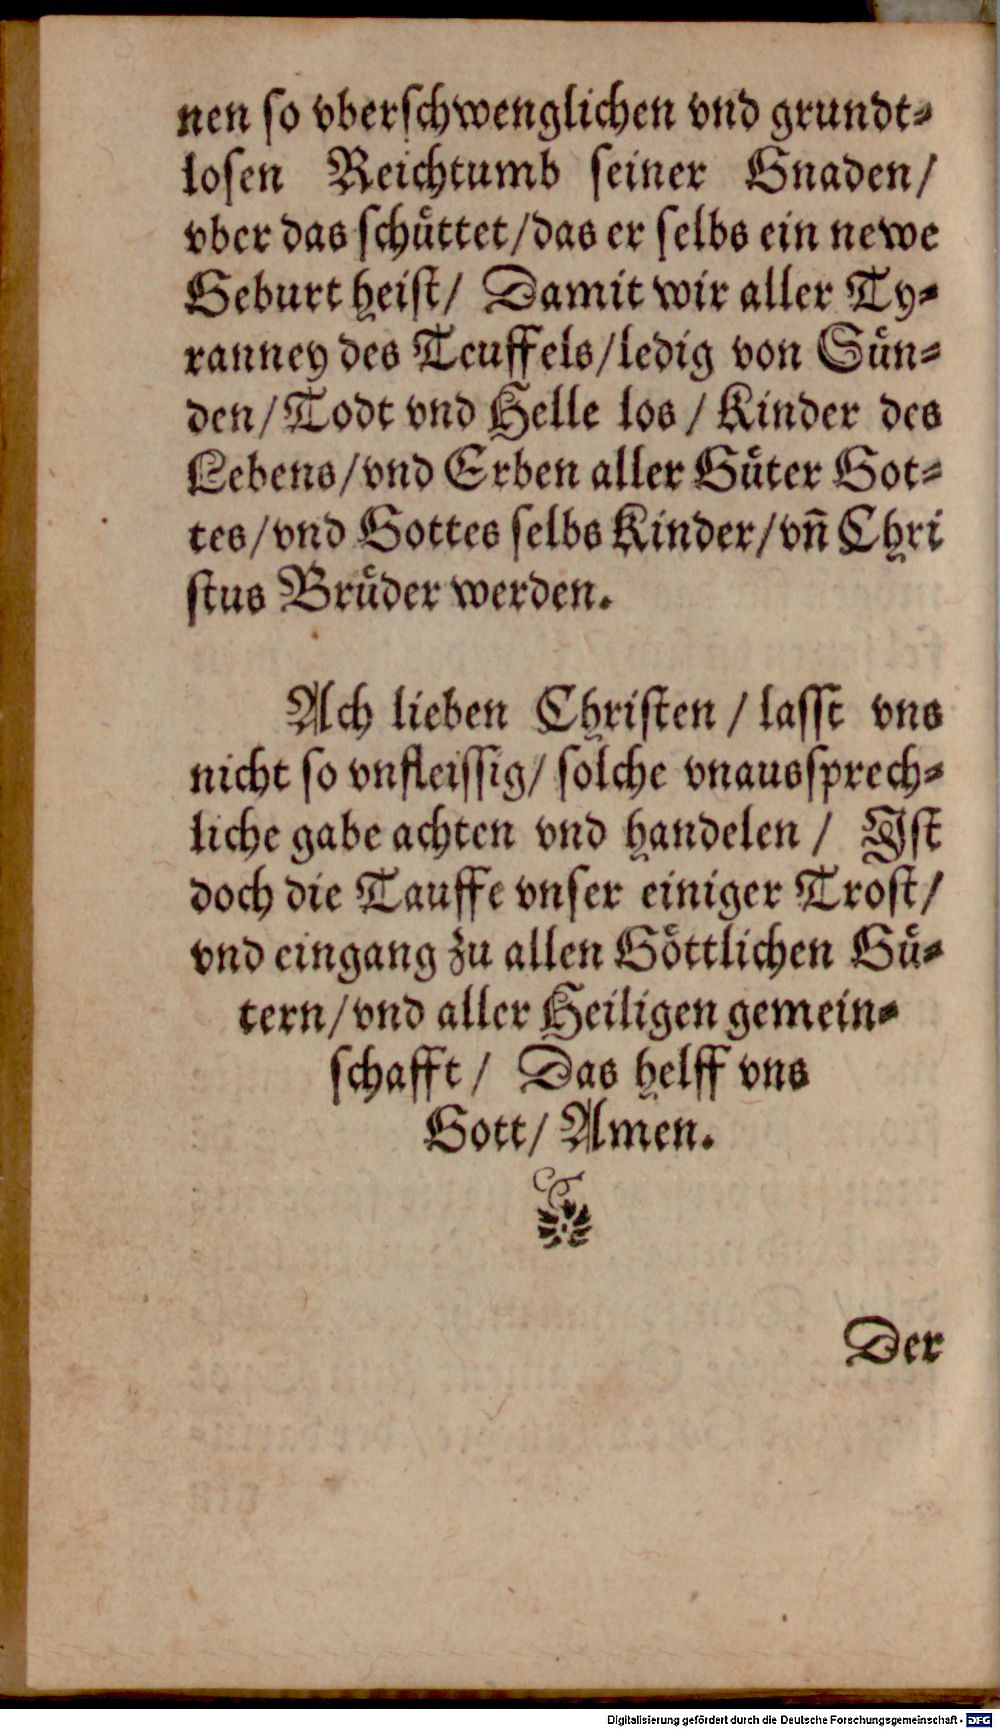 nen so vberschwenglichen vnd grundt⸗
losen Reichtumb seiner Gnaden/
vber das schuͤttet/das er selbs ein newe
Geburt heist/ Damit wir aller Ty⸗
ranney des Teuffels/ledig von Suͤn⸗
den/Todt vnd Helle los / Kinder des
Lebens/vnd Erben aller Guͤter Got⸗
tes/vnd Gottes selbs Kinder/vn̄ Chri
stus Bruͤder werden.
Ach lieben Christen / lasst vns
nicht so vnfleissig/ solche vnaussprech⸗
liche gabe achten vnd handelen / Ist
doch die Tauffe vnser einiger Trost/
vnd eingang zu allen Goͤttlichen Guͤ⸗
tern/vnd aller Heiligen gemein⸗
schafft / Das helff vns
Gott/ Amen.
Der
Digitalisierung gefördert durch die Deutsche Forschungsgemeinschaft - DFG